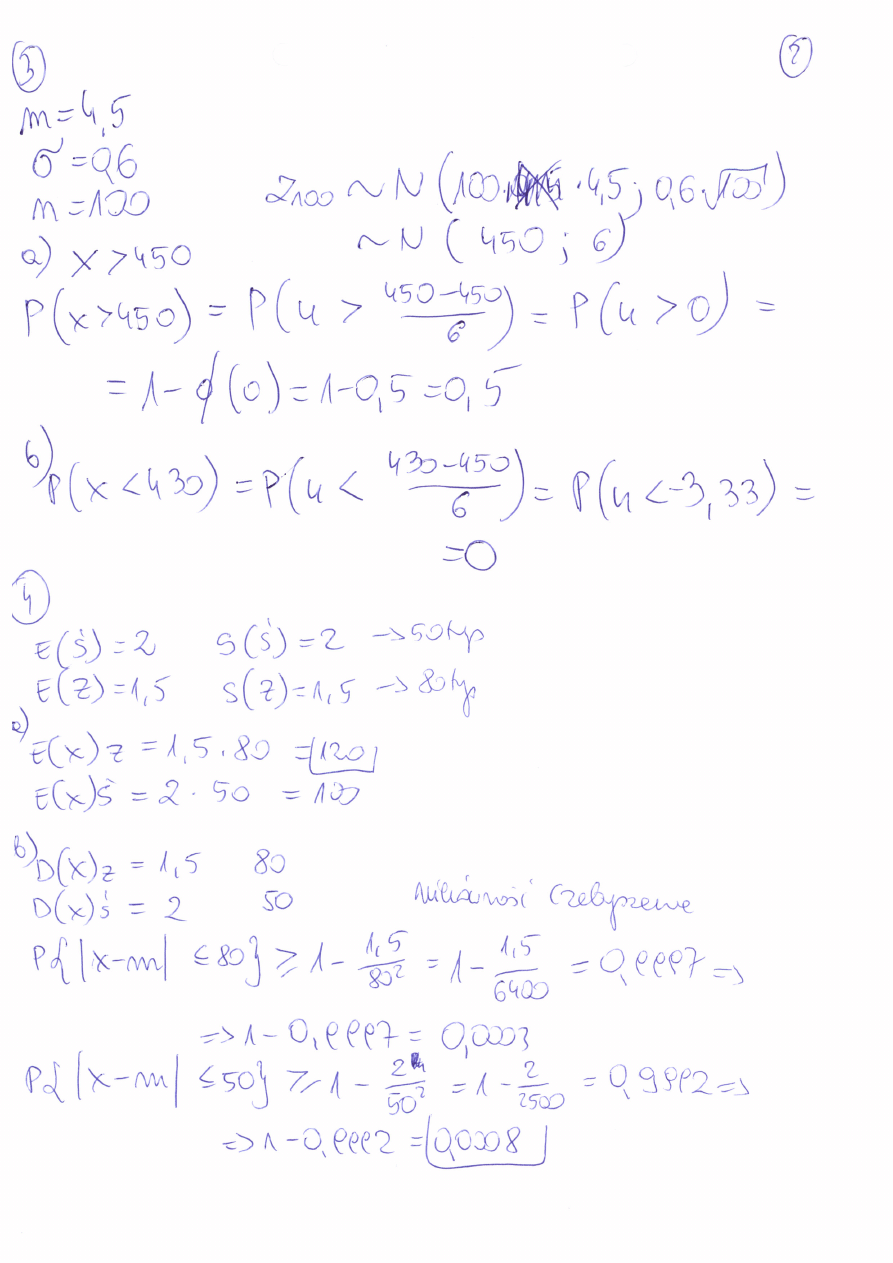 3
2
m=4,5
σ=0,6
m=100
Z₁₀₀ ~ N (100 · 4,5 ; 0,6·√100)
~ N ( 450 ; 6)
a) x > 450
P(x>450) = P(u > (450-450)/6) = P(u > 0) =
= 1 - ϕ(0) = 1-0,5 = 0,5
b) P(x < 430) = P(u < (430-450)/6) = P(u < -3,33) =
=0
4
E(Ś) = 2 S(Ś) = 2 → 50 typ
E(Z) = 1,5 S(Z) = 1,5 → 80 typ
a)
E(x)z = 1,5 · 80 = 120
E(x)ś = 2 · 50 = 100
b)
D(x)z = 1,5 80
D(x)ś = 2 50
Czebyszewa
P{|x-m| ≤ 80} ≥ 1 - 1,5/80² = 1 - 1,5/6400 = 0,9997 ⇒
⇒ 1 - 0,9997 = 0,0003
P{|x-m| ≤ 50} ≥ 1 - 2/50² = 1 - 2/2500 = 0,9992 ⇒
⇒ 1 - 0,9992 = 0,0008